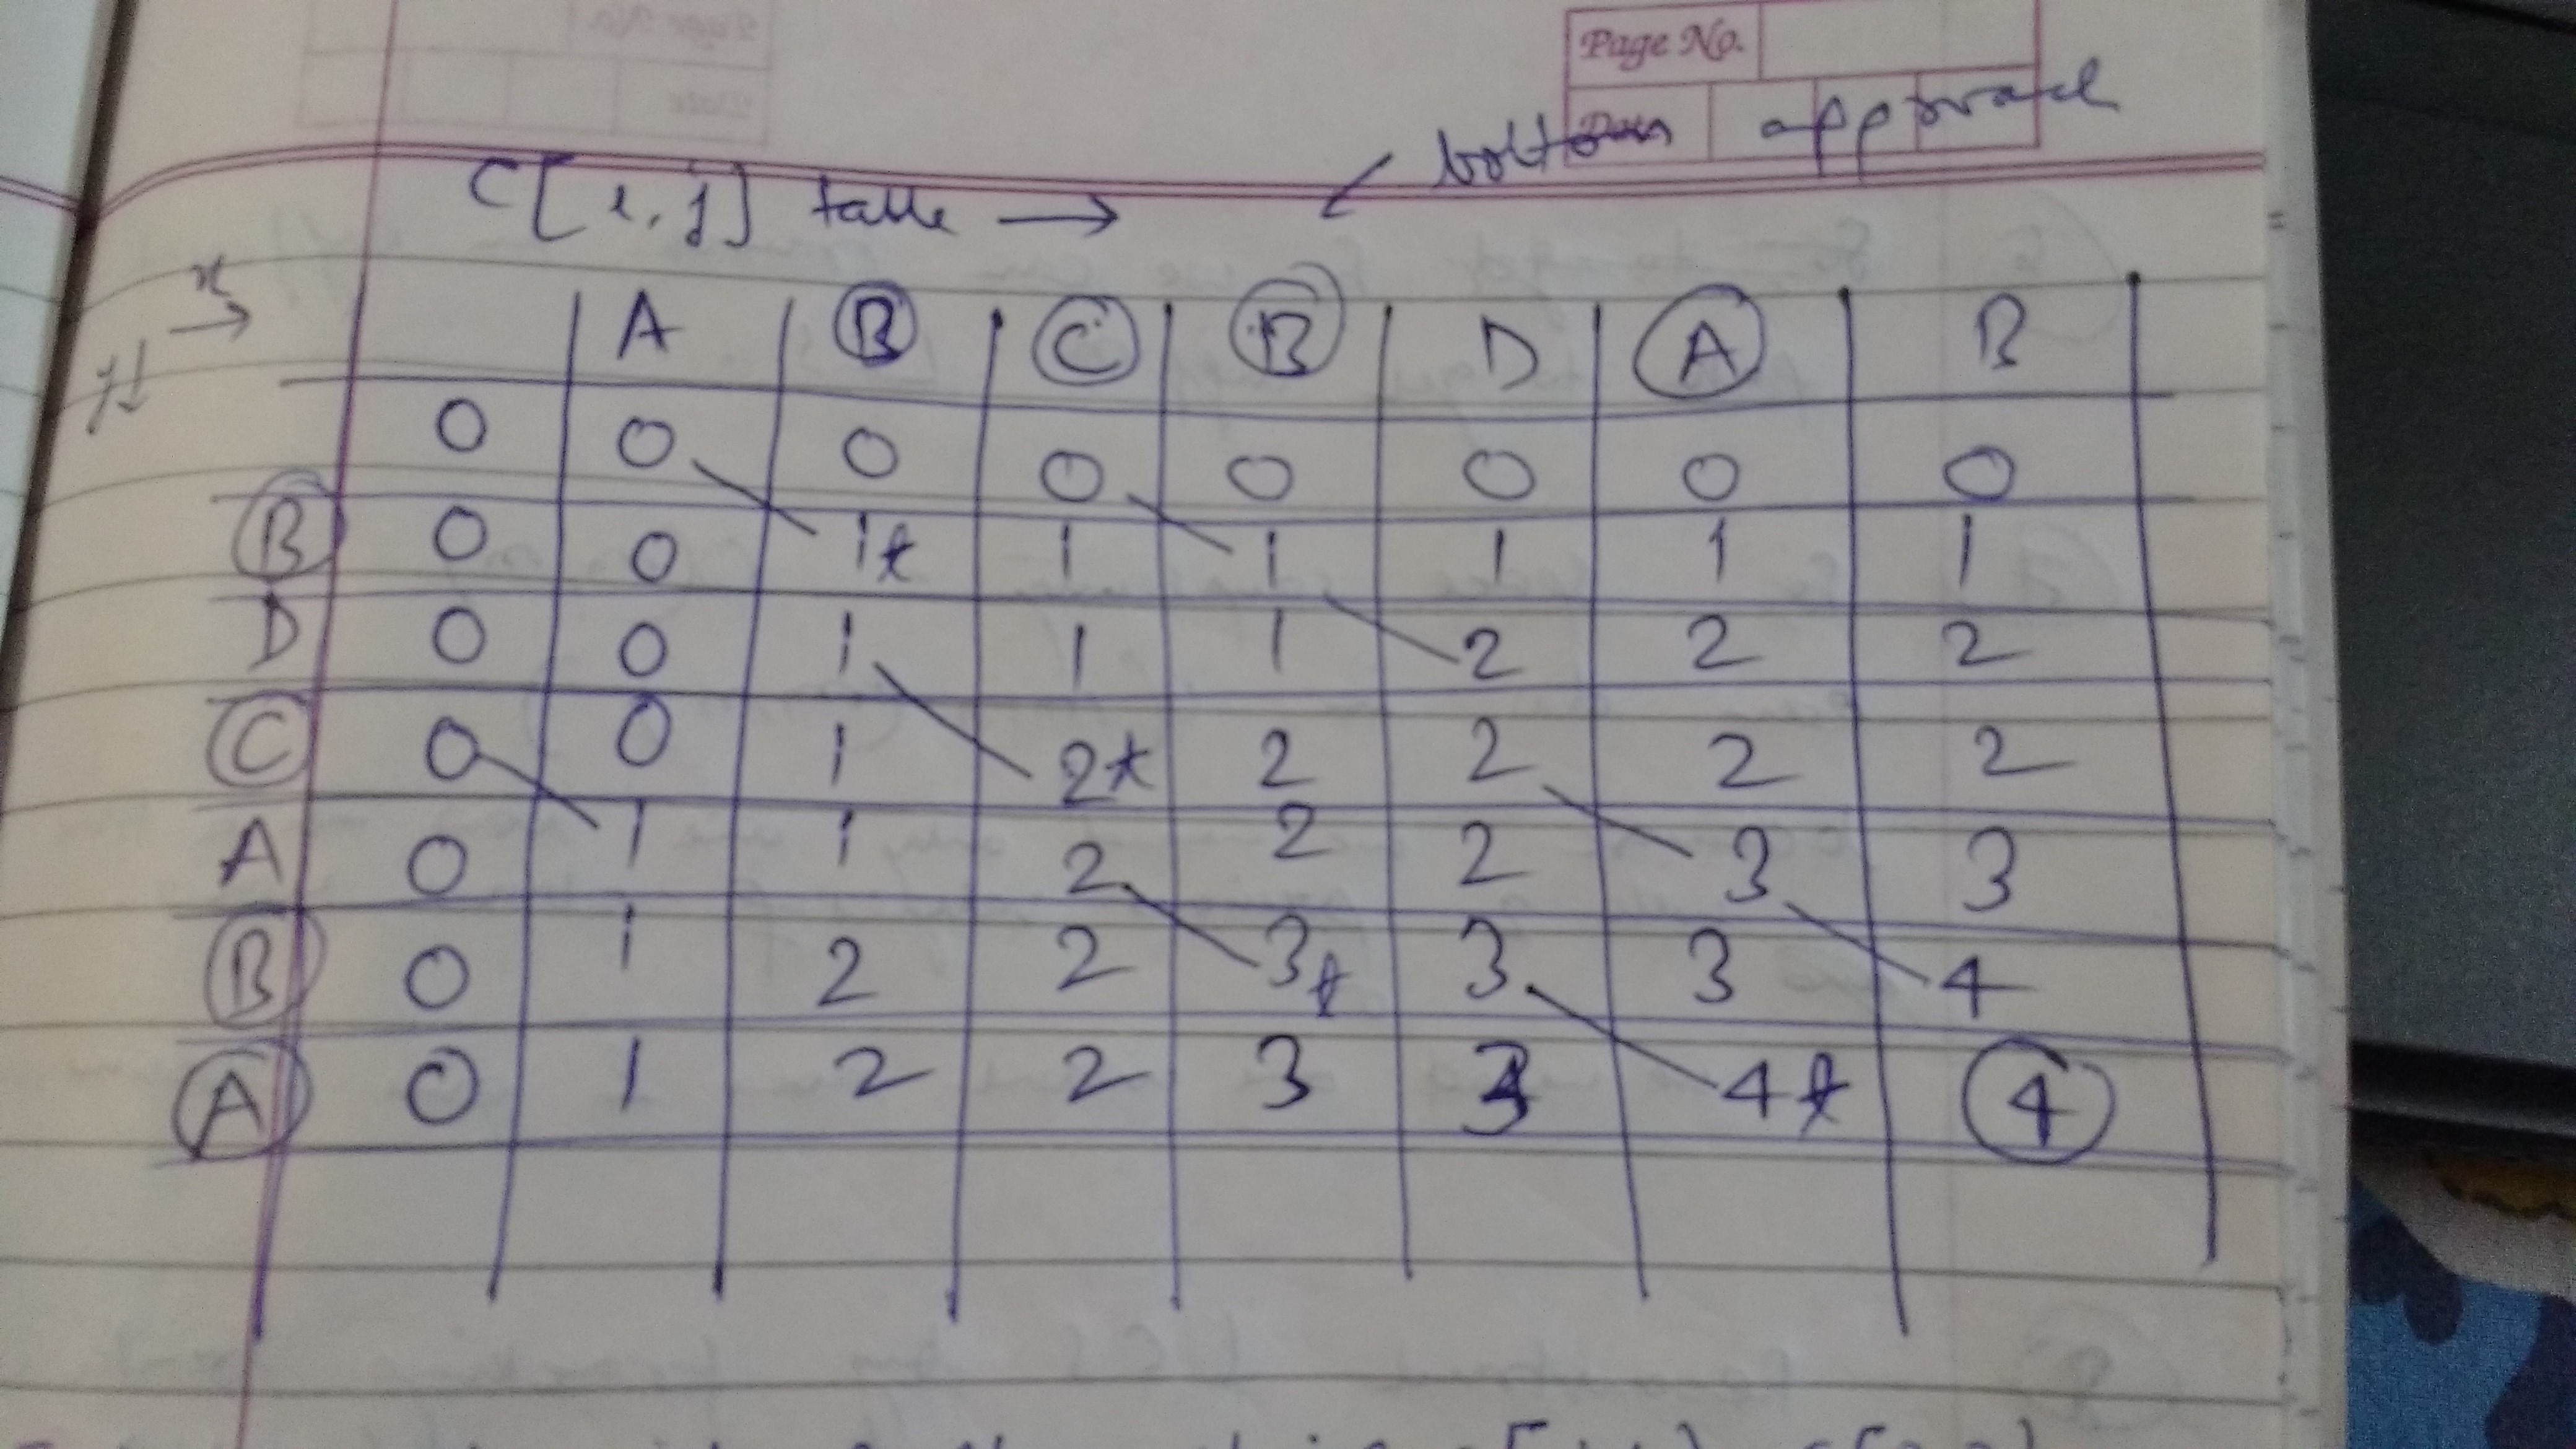 Page No.
bottom approach
C[i,j] table →
x →
y↓
A B C B D A B
0 0 0 0 0 0 0 0
B 0 0 1* 1 1 1 1 1
D 0 0 1 1 1 2 2 2
C 0 0 1 2* 2 2 2 2
A 0 1 1 2 2 2 3 3
B 0 1 2 2 3* 3 3 4
A 0 1 2 2 3 3 4* 4